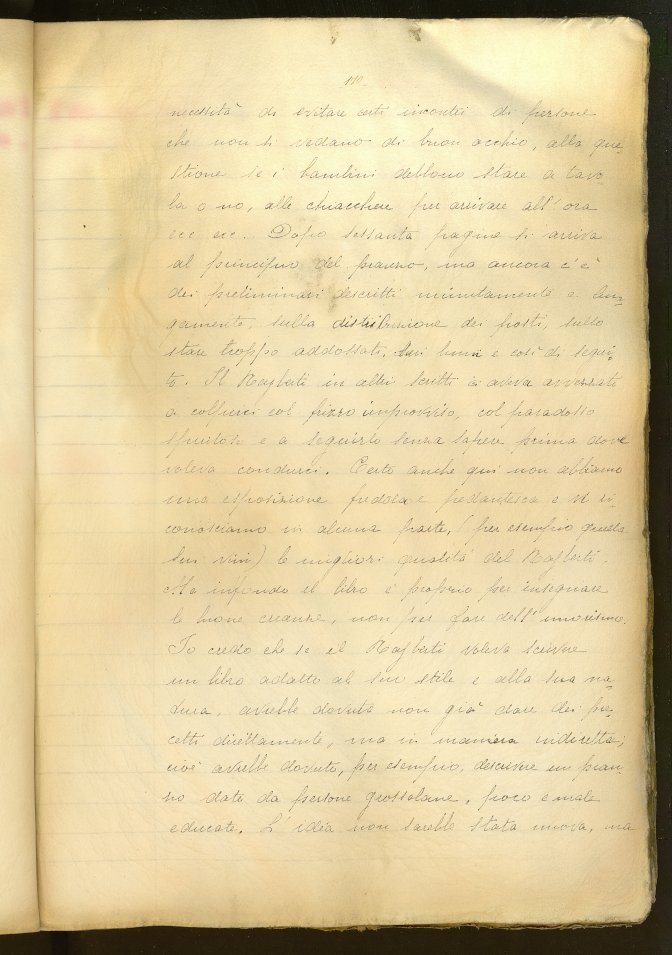 110
necessità di evitare certi incontri di persone
che non si vedano di buon occhio, alla que-
stione se i bambini debbono stare a tavo-
la o no, alle chiacchere per arrivare all'ora
ecc ecc. Dopo sessanta pagine si arriva
al principio del pranzo, ma ancora c'è
dei preliminari descritti minutamente e lun-
gamente, sulla distribuzione dei posti, sullo
stare troppo addossati, sui lumi e così di segui-
to. Il Rajberti in altri scritti ci aveva avvezzati
a colpirci col frizzo improvviso, col paradosso
spiritoso e a seguirlo senza sapere prima dove
voleva condurci. Certo anche qui non abbiamo
una esposizione fredda e pedantesca e vi ri-
conosciamo in alcuna parte, (per esempio quella
sui vini) le migliori qualità del Rajberti.
Ma in fondo il libro è proprio per insegnare
le buone creanze, non per fare dell'umorismo.
Io credo che se il Rajberti voleva scrivere
un libro adatto al suo stile e alla sua na-
tura, avrebbe dovuto non già dare dei pre-
cetti direttamente, ma in maniera indiretta;
cioè avrebbe dovuto, per esempio, descrivere un pran-
zo dato da persone grossolane, poco e male
educate. L'idea non sarebbe stata nuova, ma